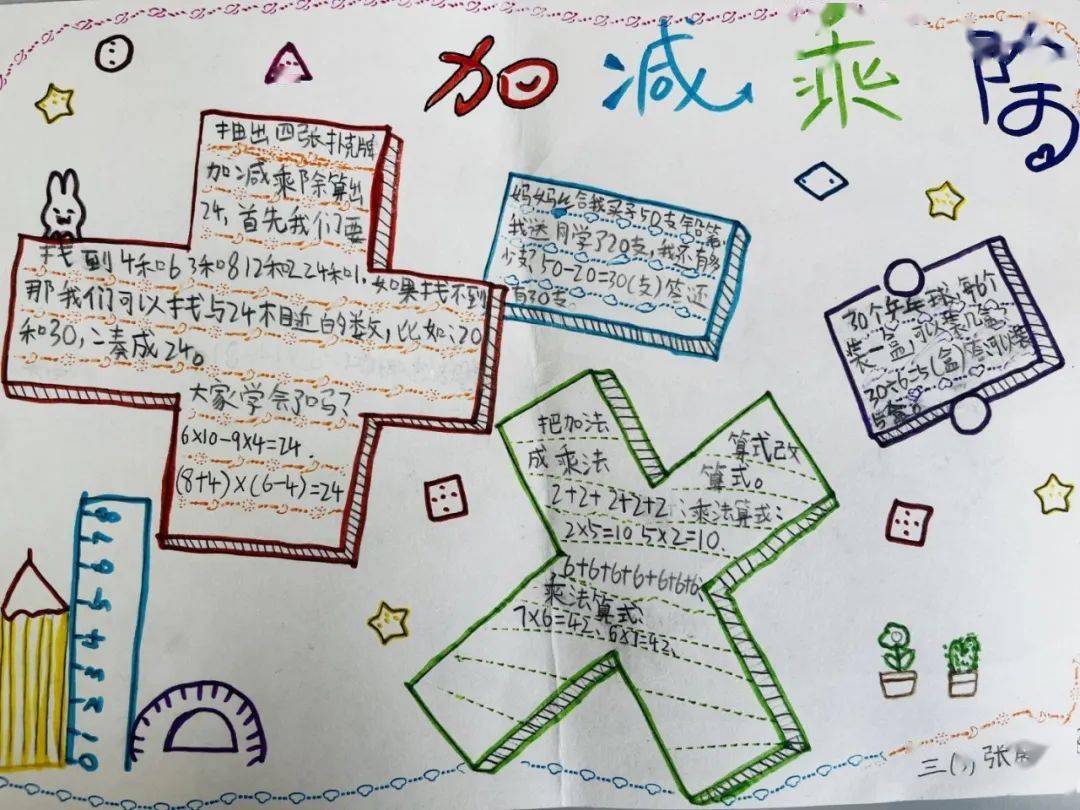 加减乘除
抽出四张扑克牌
加减乘除算出
24,首先我们要
找到4和6 3和8 12和2 24和1.如果找不到
那我们可以找与24相近的数,比如:20
和30,凑成24。
大家学会了吗?
6×10-9×4=24.
(8+4)×(6-4)=24
妈妈给我买了50支铅笔,
我送同学了20支,我还有多
少支? 50-20=30(支)答:还
有30支。
30个乒乓球,每6个
装一盒,可以装几盒?
30÷6=5(盒)
5盒。
把加法 算式改
成乘法 算式。
2+2+2+2+2 :乘法算式:
2×5=10 5×2=10.
6+6+6+6+6+6+6:
乘法算式:
7×6=42、6×7=42、
8
7
6
5
4
3
2
1
0
三(1)张